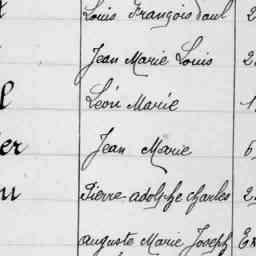 Louis François Paul 2
Jean Marie Louis 2
l Léon Marie 1
er Jean Marie 6
u Pierre adolphe charles 2
auguste Marie Joseph Ex